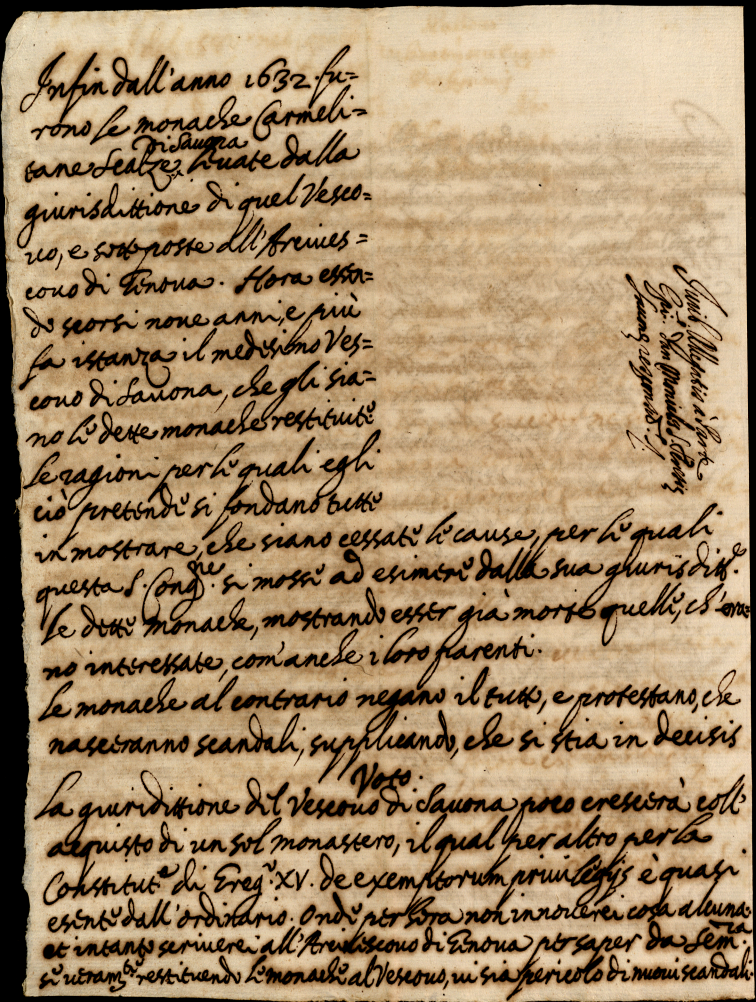 Infin dall'anno 1632. fu=
rono le monache Carmeli=
tane Scalze di Savona levate dalla
giurisdittione di quel Vesco=
vo, e sottoposte all'Arcives=
covo di Genova. Hora essen=
do scorsi nove anni, e più
fa istanza il medesimo Ves=
covo di Savona, che gli sia=
no le dette monache restituite
le ragioni per le quali egli
ciò pretende si fondano tutte
in mostrare, che siano cessate le cause, per le quali
questa S. Cong.ne si mosse ad esimere dalla sua giurisditt.e
le dette monache, mostrando esser già morte quelle, ch'era=
no interessate, com'anche i loro parenti.
Le monache al contrario negano il tutto, e protestano, che
nasceranno scandali, supplicando, che si stia in decisis
Voto.
La giuridittione del Vescovo di Savona poco crescerà coll'
acquisto di un sol monastero, il qual per altro per la
Constitut.e di Greg.o XV. de exemptorum privilegijs è quasi
esente dall'ordinario. Onde per hora non innoverei cosa alcuna
et intanto scriverei all'Arcivescovo di Genova per saper da
se veram.te restituendo le monache al Vescovo, vi sia pericolo di nuovi scandali.
Iunij Allegatis à Parte